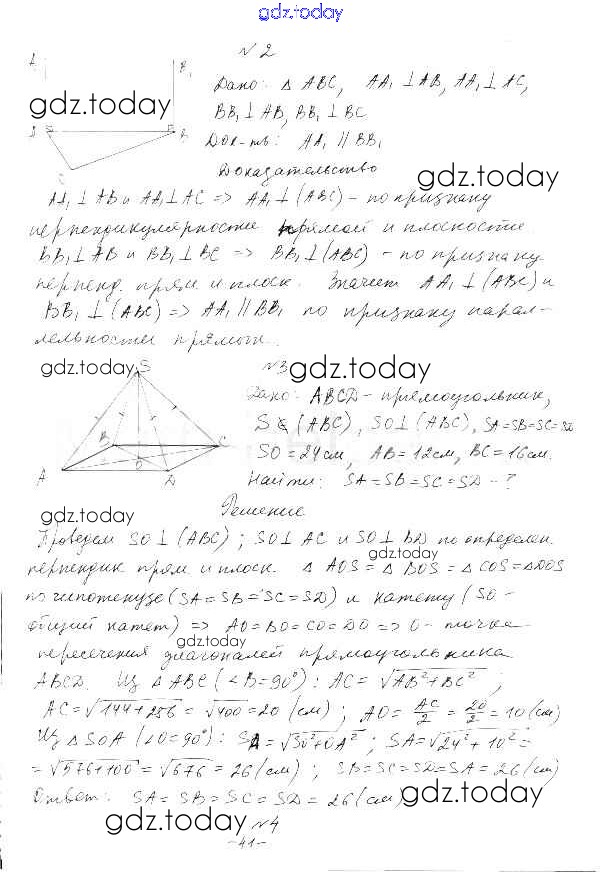 gdz.today
№2
Дано: △ ABC, AA₁ ⊥ AB, AA₁ ⊥ AC,
BB₁ ⊥ AB, BB₁ ⊥ BC
Док-ть: AA₁ ∥ BB₁
A₁
B₁
A
B
C
gdz.today
Доказательство
gdz.today
AA₁ ⊥ AB и AA₁ ⊥ AC => AA₁ ⊥ (ABC) - по признаку
перпендикулярности прямой и плоскости
BB₁ ⊥ AB и BB₁ ⊥ BC => BB₁ ⊥ (ABC) - по признаку
перпенд. прям и плоск. Значит AA₁ ⊥ (ABC) и
BB₁ ⊥ (ABC) => AA₁ ∥ BB₁ по признаку парал-
лельности прямых.
gdz.today
№3
gdz.today
Дано: ABCD - прямоугольник,
S ∉ (ABC), SO ⊥ (ABC), SA=SB=SC=SD
SO = 24 см, AB = 12 см, BC = 16 см.
Найти: SA = SB = SC = SD - ?
S
B
C
A
O
D
Решение
gdz.today
Проведем SO ⊥ (ABC); SO ⊥ AC и SO ⊥ BD по определен.
gdz.today
перпендик прям и плоск. △ AOS = △ BOS = △ COS = △DOS
по гипотенузе (SA = SB = SC = SD) и катету (SO -
общий катет) => AO = BO = CO = DO => O - точка
gdz.today
пересечения диагоналей прямоугольника
ABCD. Из △ ABC (∠B = 90°): AC = √AB² + BC²;
AC = √144 + 256 = √400 = 20 (см); AO = AC/2 = 20/2 = 10 (см)
Из △ SOA (∠O = 90°): SA = √SO² + OA²; SA = √24² + 10² =
= √576 + 100 = √676 = 26 (см); SB = SC = SD = SA = 26 (см)
Ответ: SA = SB = SC = SD = 26 (см)
gdz.today
gdz.today
№4
-41-